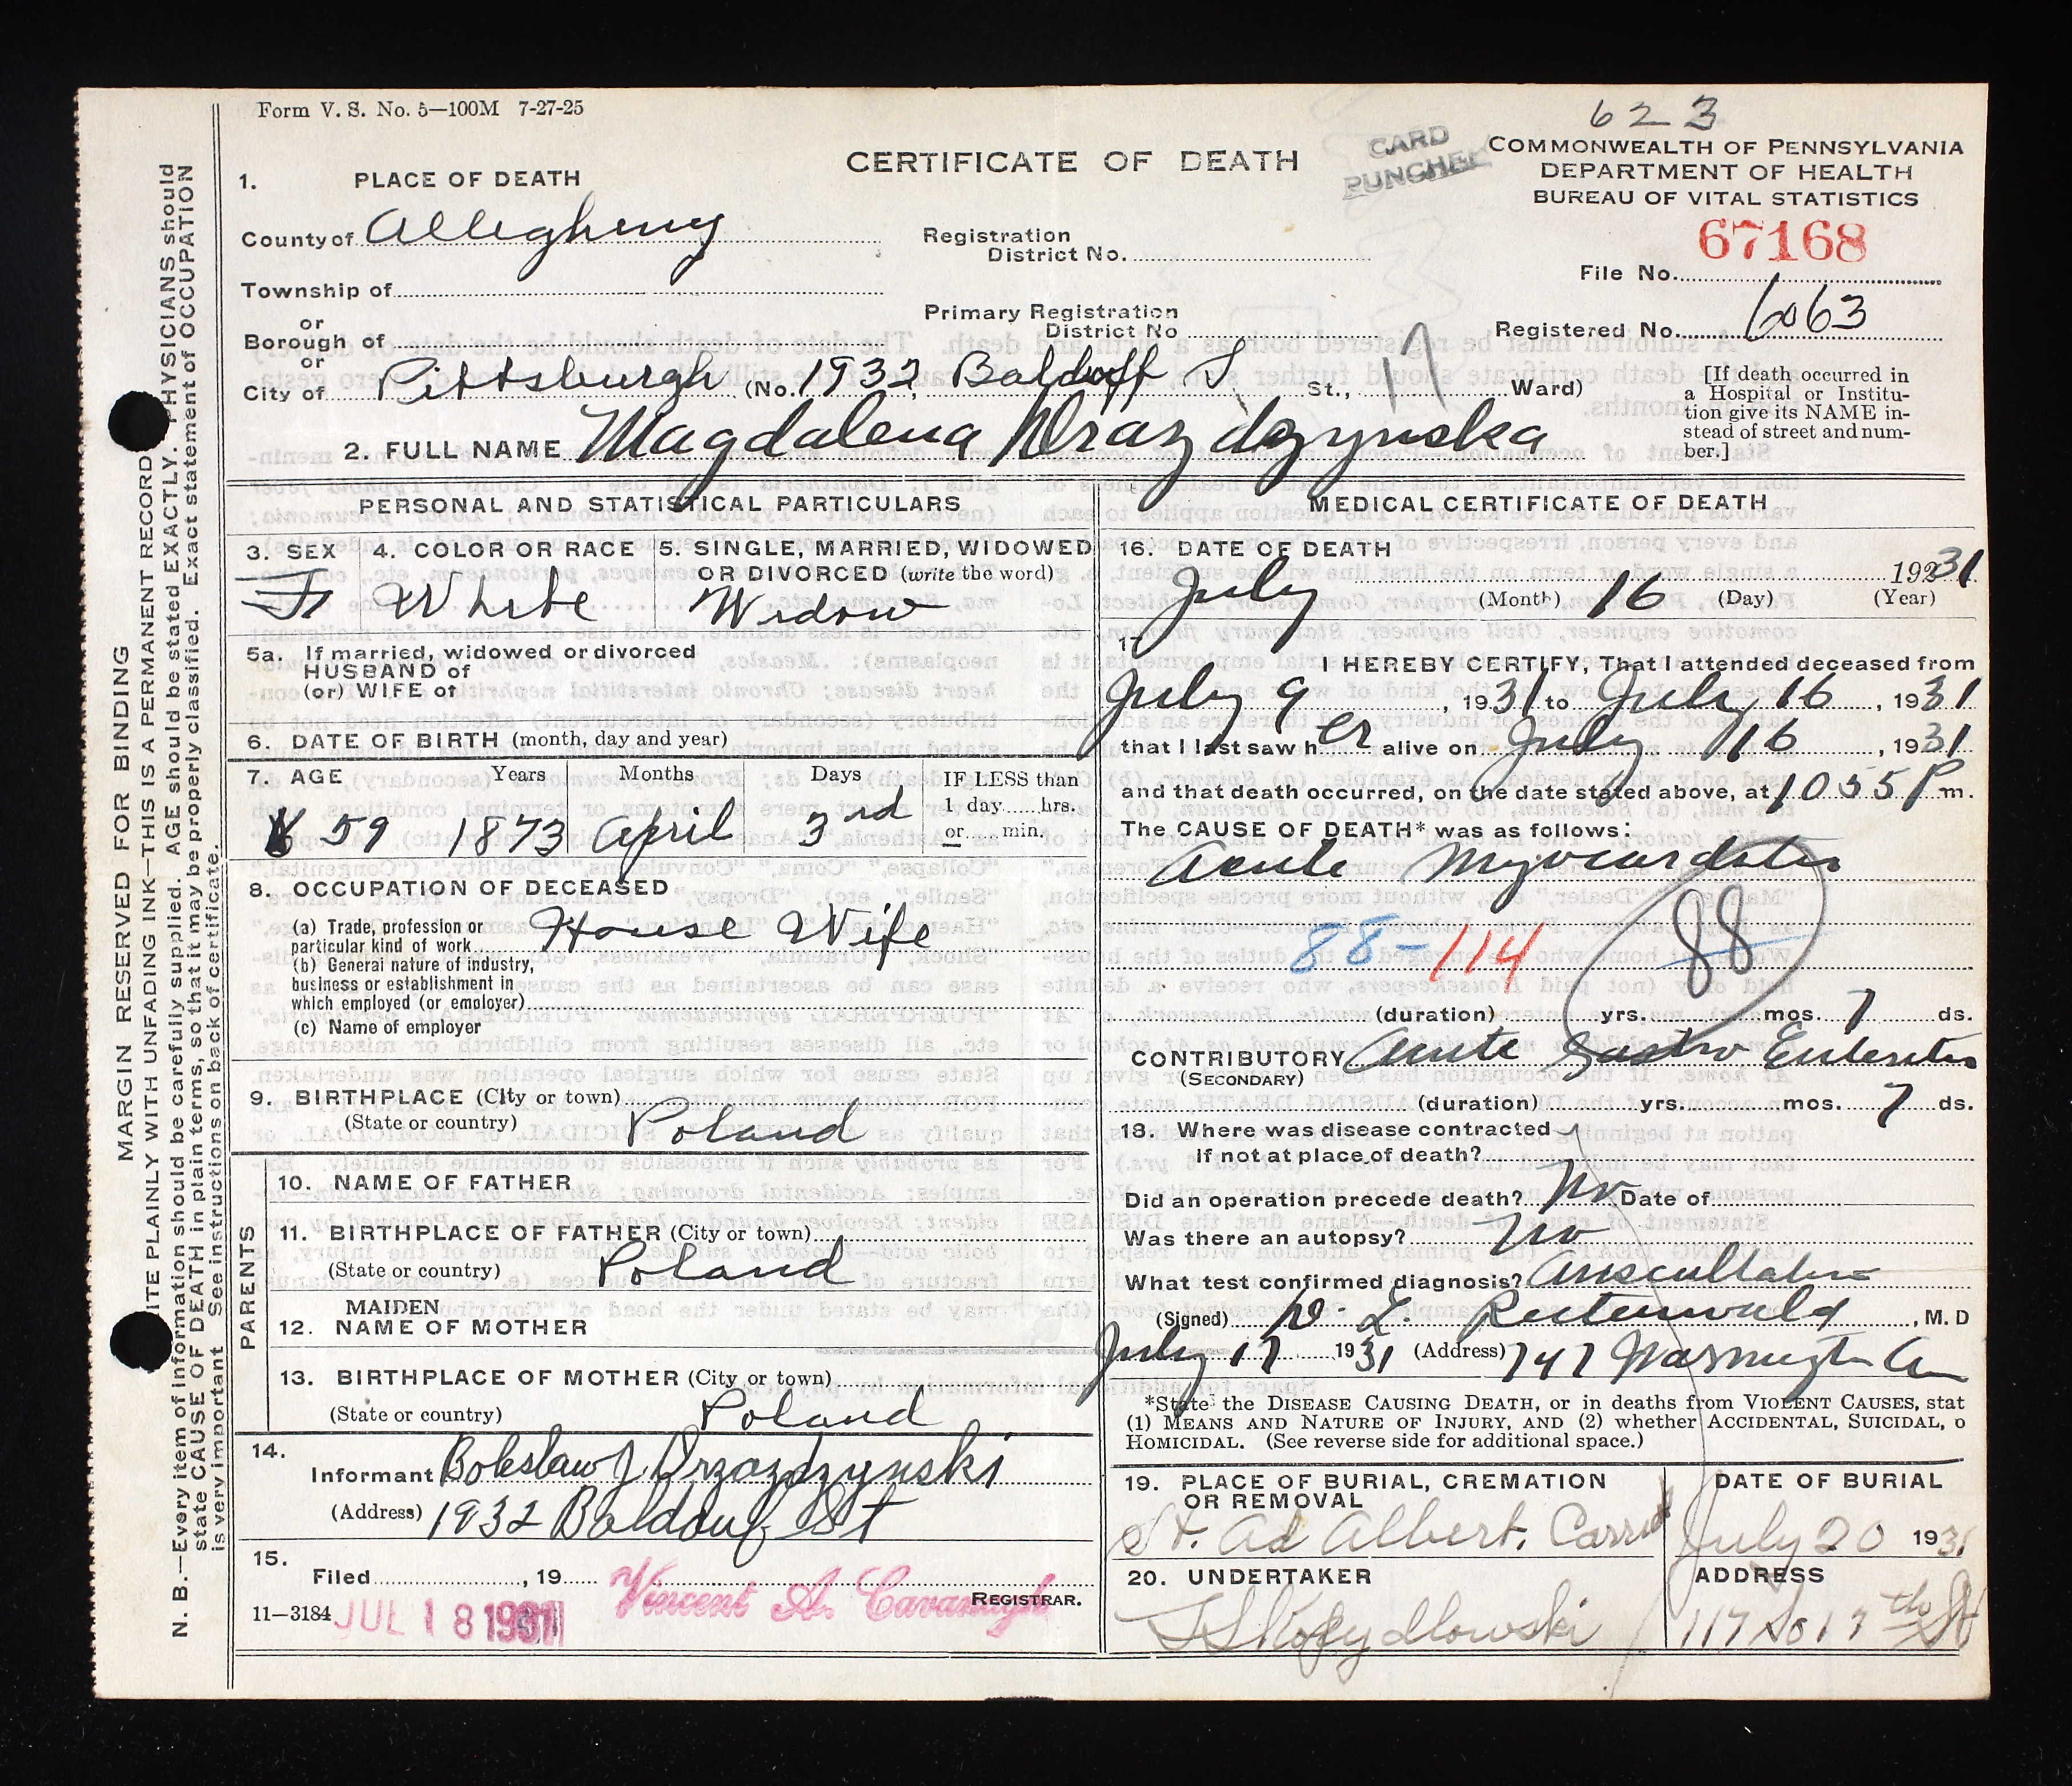 Form V. S. No. 5—100M 7-27-25
623
CERTIFICATE OF DEATH
CARD PUNCHED
COMMONWEALTH OF PENNSYLVANIA
DEPARTMENT OF HEALTH
BUREAU OF VITAL STATISTICS
1. PLACE OF DEATH
County of Allegheny
Registration
District No.
67168
File No.
Township of
or
Borough of
or
Primary Registration
District No
Registered No. 6063
City of Pittsburgh (No. 1932, Baldoff St., 17 Ward)
[If death occurred in
a Hospital or Institu-
tion give its NAME in-
stead of street and num-
ber.]
2. FULL NAME Magdalena Drazdzynska
PERSONAL AND STATISTICAL PARTICULARS
3. SEX 4. COLOR OR RACE 5. SINGLE, MARRIED, WIDOWED
OR DIVORCED (write the word)
F White Widow
5a. If married, widowed or divorced
HUSBAND of
(or) WIFE of
6. DATE OF BIRTH (month, day and year)
7. AGE Years Months Days IF LESS than
1 day......hrs.
or......min.
59 1873 April 3rd
8. OCCUPATION OF DECEASED
(a) Trade, profession or
particular kind of work House Wife
(b) General nature of industry,
business or establishment in
which employed (or employer)
(c) Name of employer
9. BIRTHPLACE (City or town)
(State or country) Poland
PARENTS
10. NAME OF FATHER
11. BIRTHPLACE OF FATHER (City or town)
(State or country) Poland
12. MAIDEN
NAME OF MOTHER
13. BIRTHPLACE OF MOTHER (City or town)
(State or country) Poland
14. Informant Boleslaw J Drzazdzynski
(Address) 1932 Baldauf St
15. Filed , 19 Vincent A. Cavanagh REGISTRAR.
11—3184 JUL 18 1931
MEDICAL CERTIFICATE OF DEATH
16. DATE OF DEATH
July (Month) 16 (Day) 19231 (Year)
17. I HEREBY CERTIFY, That I attended deceased from
July 9, 1931 to July 16, 1931
that I last saw her alive on July 16, 1931
and that death occurred, on the date stated above, at 10 55 P m.
The CAUSE OF DEATH* was as follows:
Acute Myocarditis
88-114 88
(duration) yrs. mos. 7 ds.
CONTRIBUTORY Acute Gastro Enteritis
(SECONDARY)
(duration) yrs. mos. 7 ds.
18. Where was disease contracted
if not at place of death?
Did an operation precede death? No Date of
Was there an autopsy? No
What test confirmed diagnosis? Auscultation
(Signed) W. L. Rectenwald, M. D
July 17 1931 (Address) 747 Warrington Av
*State the DISEASE CAUSING DEATH, or in deaths from VIOLENT CAUSES, stat
(1) MEANS AND NATURE OF INJURY, AND (2) whether ACCIDENTAL, SUICIDAL, o
HOMICIDAL. (See reverse side for additional space.)
19. PLACE OF BURIAL, CREMATION
OR REMOVAL
DATE OF BURIAL
St. Ad Albert, Carrick July 20 1931
20. UNDERTAKER ADDRESS
117 So 17th St
MARGIN RESERVED FOR BINDING
ITE PLAINLY WITH UNFADING INK—THIS IS A PERMANENT RECORD
N. B.—Every item of information should be carefully supplied. AGE should be stated EXACTLY. PHYSICIANS should
state CAUSE OF DEATH in plain terms, so that it may be properly classified. Exact statement of OCCUPATION
is very important. See instructions on back of certificate.